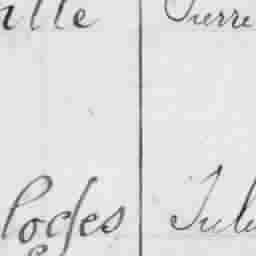 ille Pierre
loges Jule